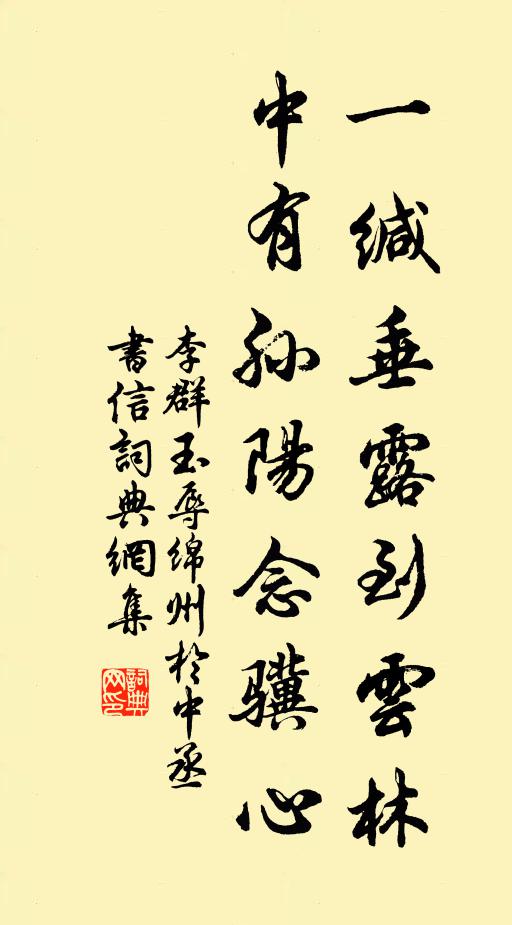 一缄垂露到雲林
中有孙陽念骥心
李群玉辱绵州於中丞
書信詞典網集
詞典網印